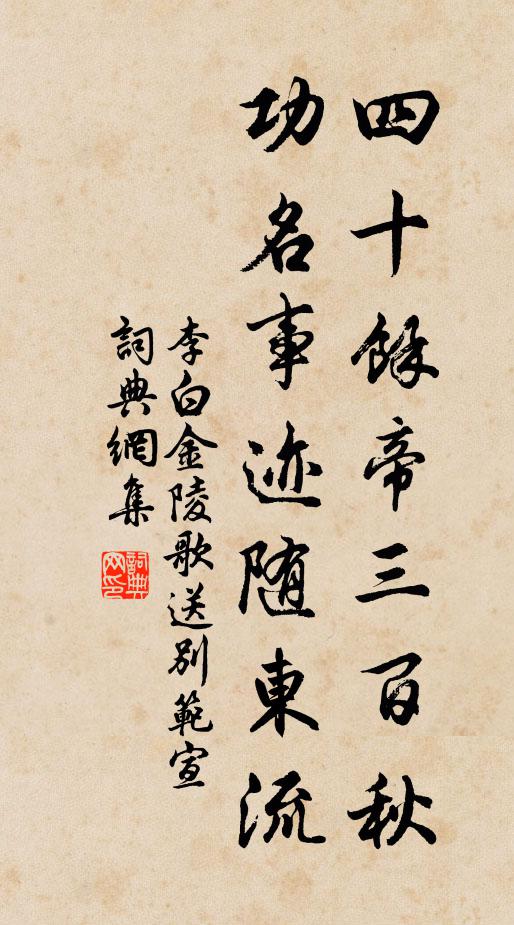 四十餘帝三百秋
功名事迹随東流
李白金陵歌送别範宣
詞典網集
詞典網印